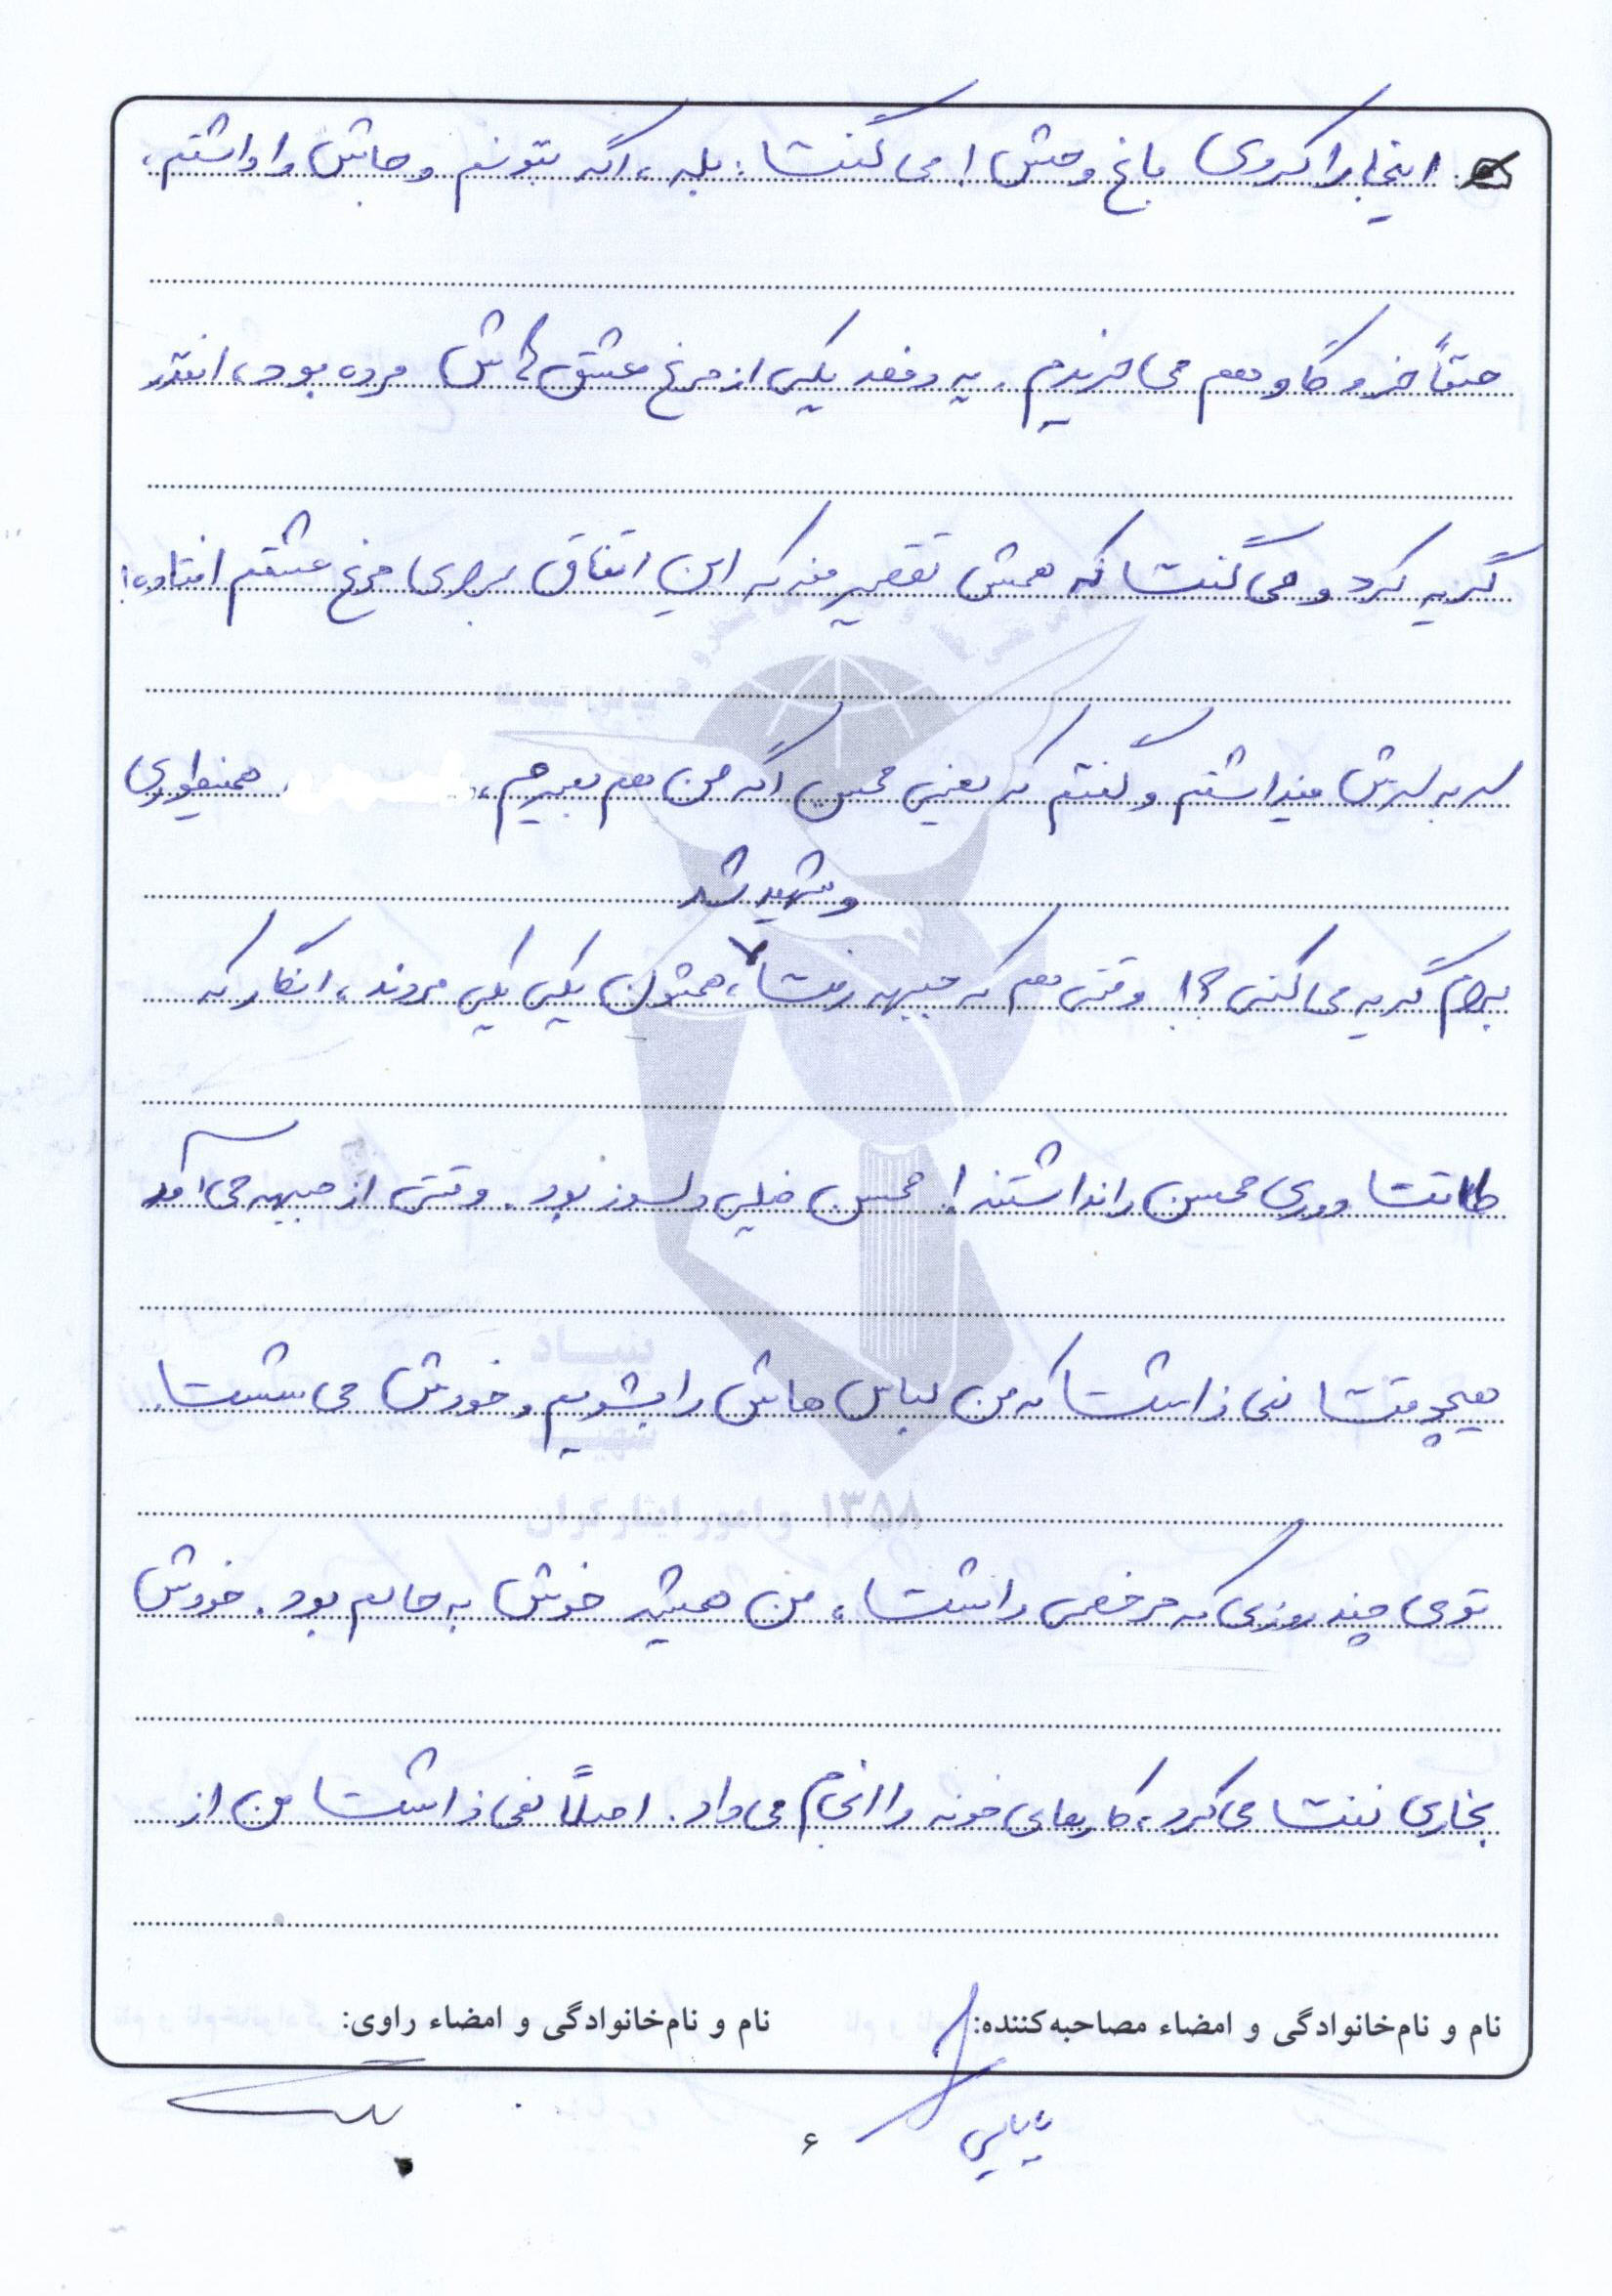 اینجا را کردی باغ وحش! می گفت: بله، اگه بتونم و جاش را داشتم،
حتماً خر و گاو هم می خریدم. یه دفعه یکی از مرغ عشق هاش مرده بود، انقدر
گریه کرد و می گفت که همش تقصیر منه که این اتفاق برای مرغ عشقم افتاده!
سر به سرش میذاشتم و گفتم که یعنی محسن اگه من هم بمیرم، همینطوری
و شهید شد
برام گریه می کنی؟! وقتی هم که جبهه رفت، همشون یکی یکی مردند، انگار که
طاقت دوری محسن را نداشتند! محسن خیلی دلسوز بود. وقتی از جبهه می آمد
هیچوقت نمی ذاشت که من لباس هاش را بشویم و خودش می شست.
توی چند روزی که مرخصی داشت، من همیشه خوش به حالم بود. خودش
بخاری نفت می کرد، کارهای خونه را انجام می داد. اصلاً نمی ذاشت من از
نام و نام‌خانوادگی و امضاء مصاحبه‌کننده: نام و نام‌خانوادگی و امضاء راوی:
۶
بنیاد
شهید
۱۳۵۸ و امور ایثارگران